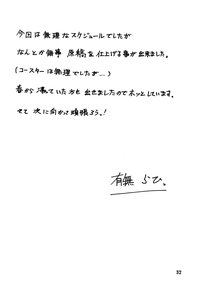 今回は無理なスケジュールでしたが
なんとか無事 原稿を仕上げる事が出来ました。
(コースターは無理でしたが…)
春から凍っていた方も出せましたのでホッとしています。
さて 次に向かって頑張ろう!
有無 らひ、
32